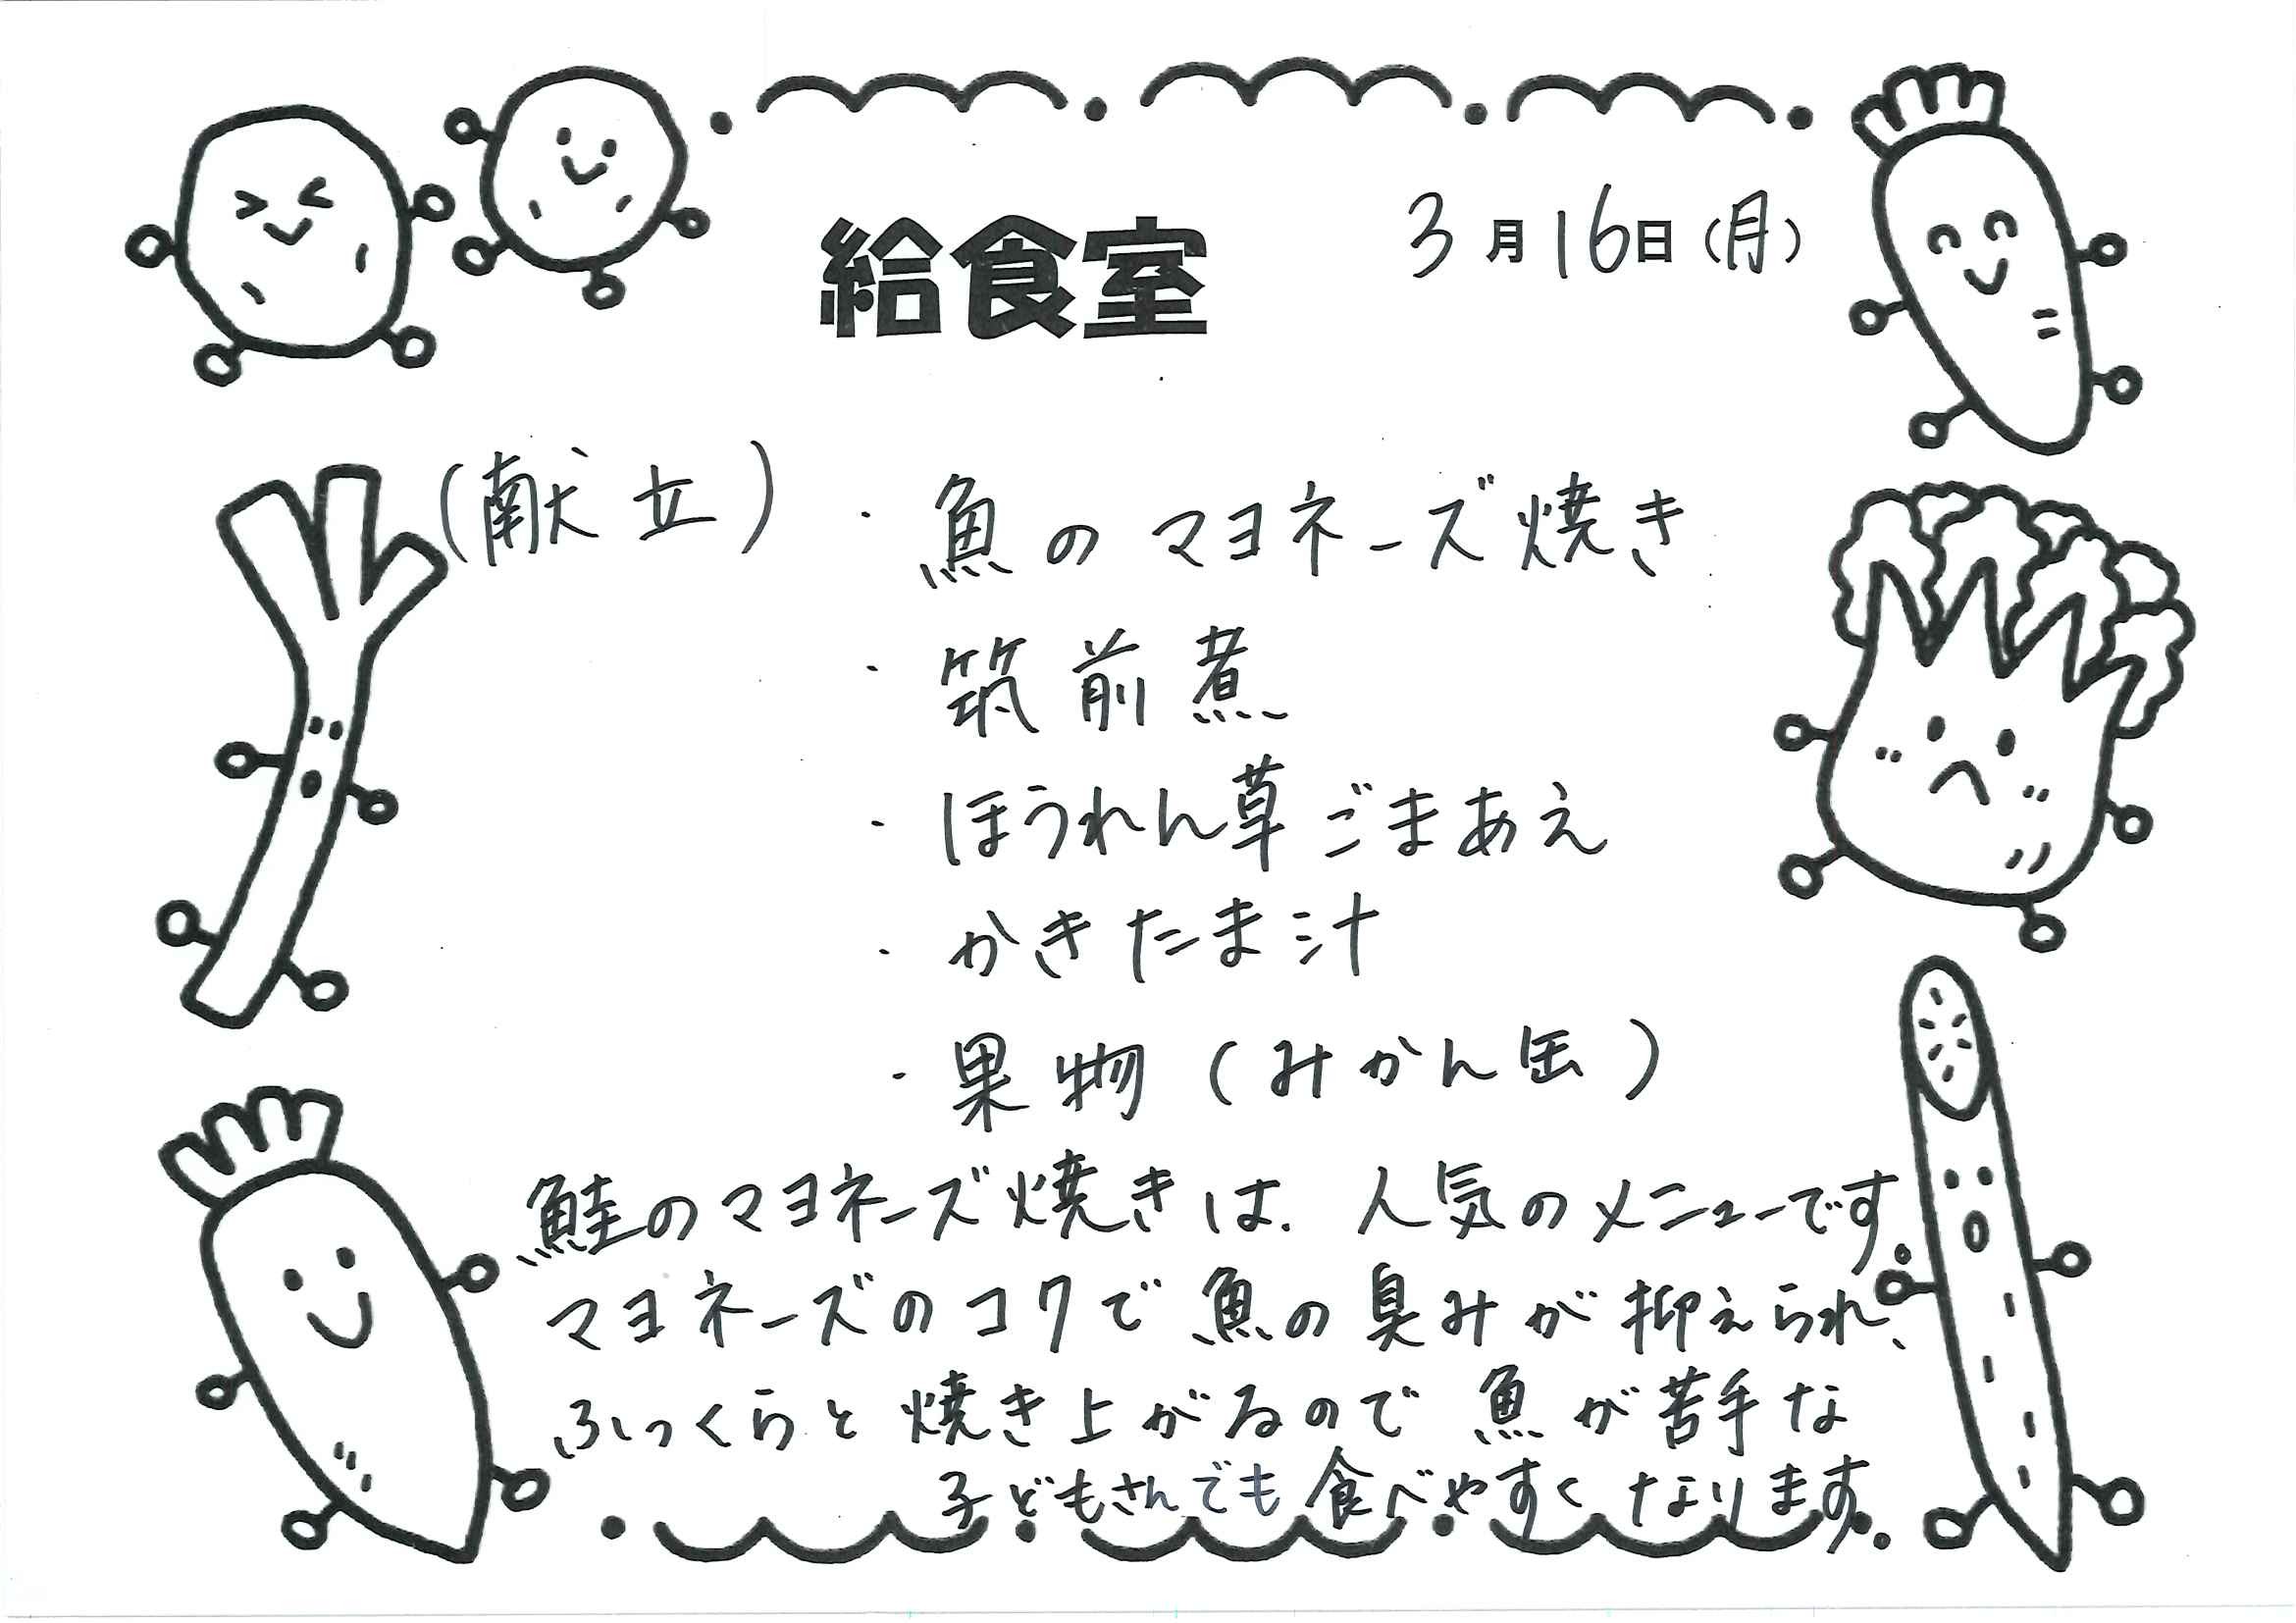 給食室
3月16日(月)
(献立)・魚のマヨネーズ焼き
・筑前煮
・ほうれん草ごまあえ
・かきたま汁
・果物(みかん缶)
鮭のマヨネーズ焼きは、人気のメニューです。
マヨネーズのコクで魚の臭みが抑えられ、
ふっくらと焼き上がるので魚が苦手な
子どもさんでも食べやすくなります。